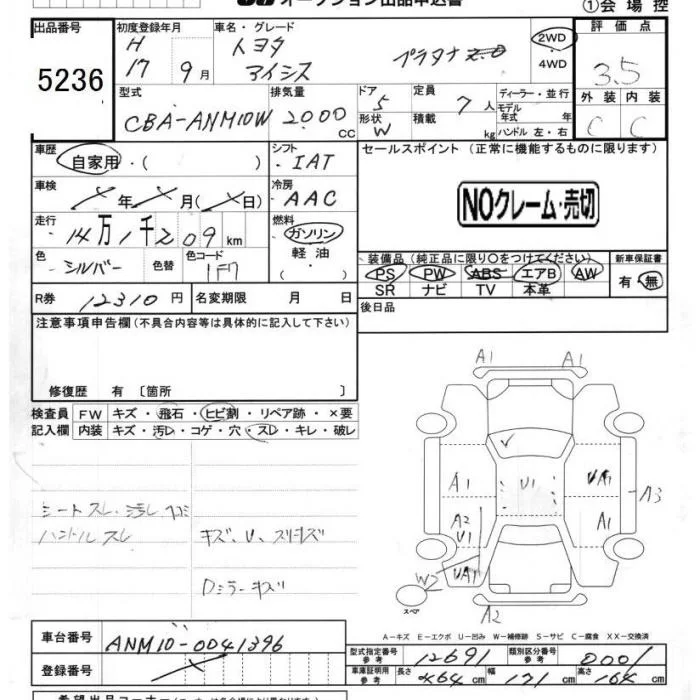 オークション出品申込書
①会場控
出品番号
5236
初度登録年月
H
17 9月
車名・グレード
トヨタ
アイシス プラタナ 2.0
2WD
4WD
評価点
3.5
外装 内装
C C
型式
CBA-ANM10W
排気量
2000
CC
ドア
5
形状
W
定員
7人
積載
kg
ディーラー・並行
モデル
年式 年
ハンドル 左・右
車歴
自家用・( )
シフト
IAT
セールスポイント (正常に機能するものに限ります)
NOクレーム・売切
車検
年 月( 日)
冷房
AAC
走行
14万1千209km
燃料
ガソリン
軽油
( )
色
シルバー
色替
色コード
1F7
装備品(純正品に限り○をつけてください)
PS PW ABS エアB AW
SR ナビ TV 本革
新車保証書
有・無
R券 12310円
名変期限 月 日
後日品
注意事項申告欄(不具合内容等は具体的に記入して下さい)
修復歴 有〔箇所 〕
検査員
記入欄
FW キズ・飛石・ヒビ割・リペア跡・×要
内装 キズ・汚レ・コゲ・穴・スレ・キレ・破レ
シート スレ・汚レ
ハンドル スレ
キズ、U、スリキズ
Dミラーキズ
A1 A1
A1 U1 UA1 A3
A2
U1 A1
W2 UA1
スペア
A2
A-キズ E-エクボ U-凹み W-補修跡 S-サビ C-腐食 XX-交換済
車台番号 ANM10-0041396
登録番号
型式指定番号
参考
12691
類別区分番号
参考
0001
車庫証明用
参考
長さ 464cm 幅 171cm 高さ 164cm
希望出品コーナー